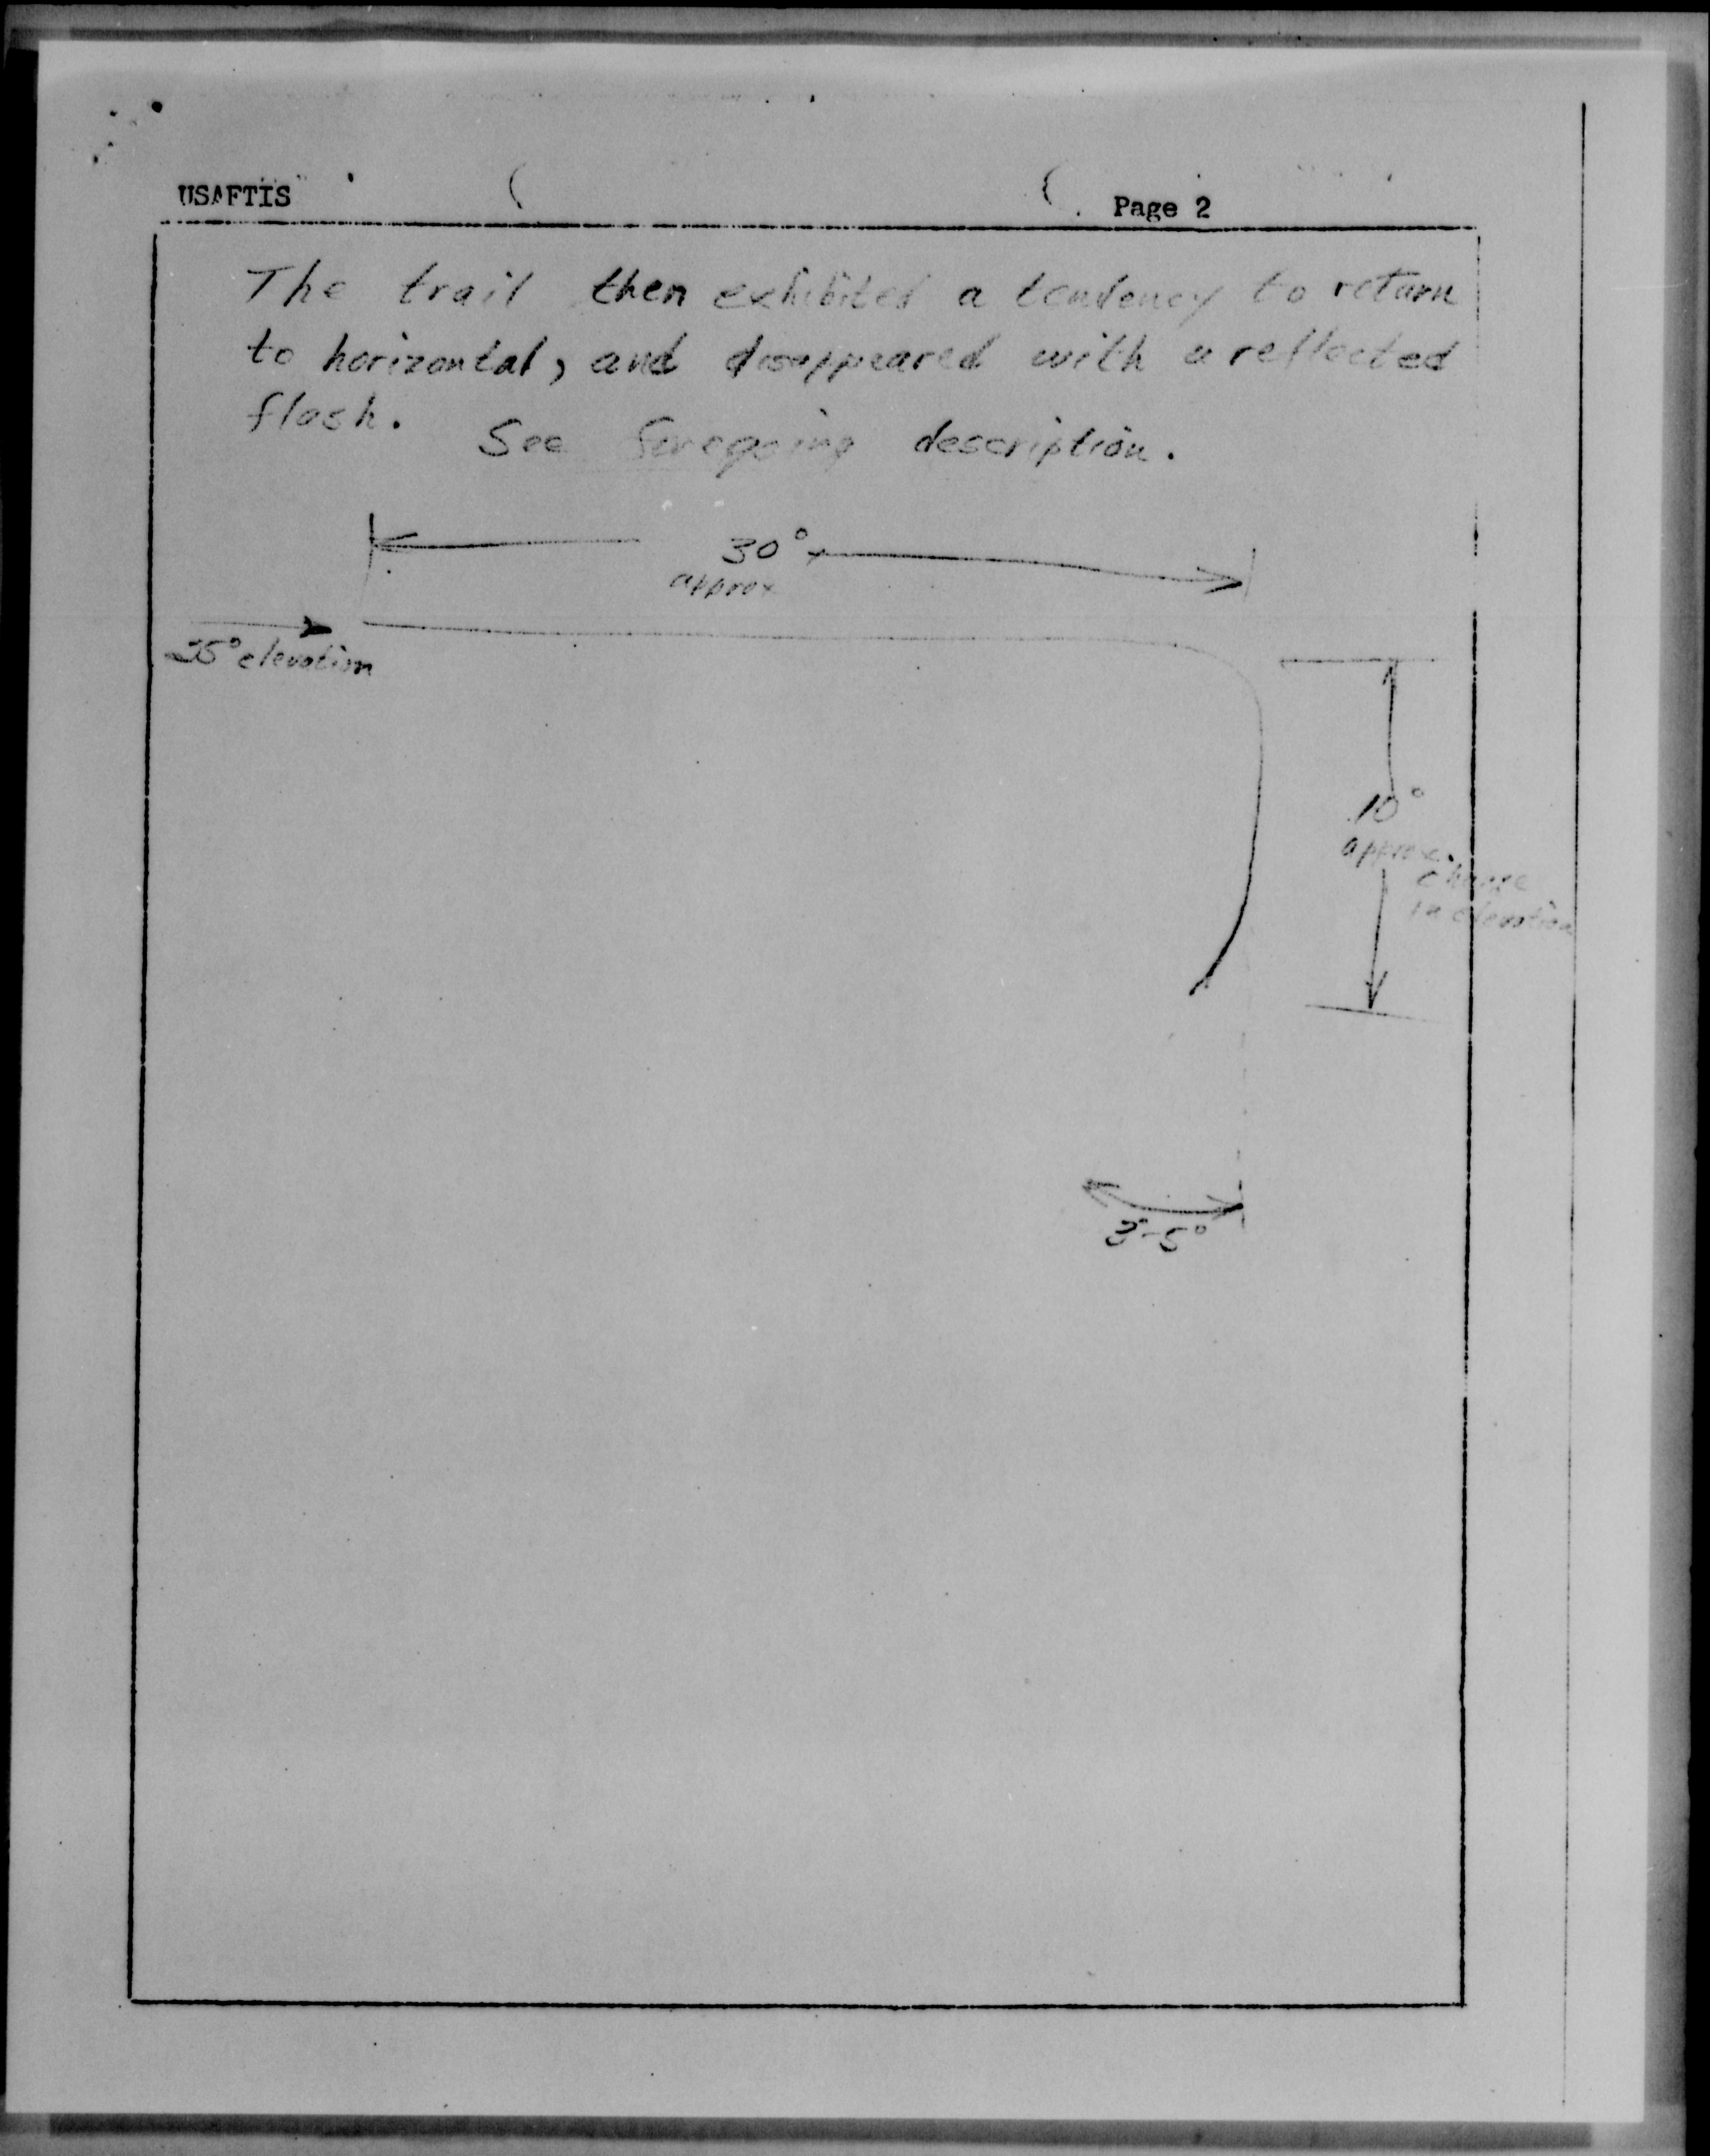 USAFTIS Page 2
The trail then exhibited a tendency to return
to horizontal, and disappeared with a reflected
flash. See foregoing description.
30°
approx
25° elevation
10°
approx.
change
in elevation
3°-5°